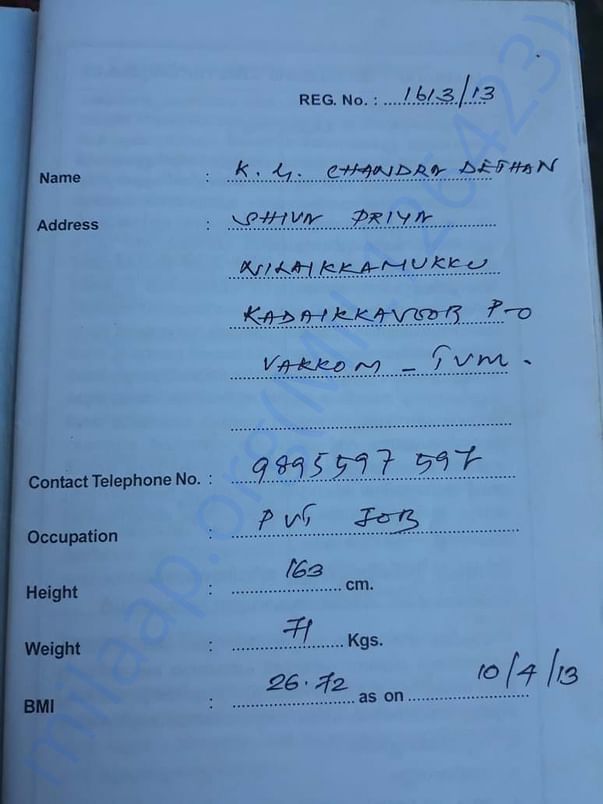 REG. No. : 1613/13
Name : K. G. CHANDRA DETHAN
Address : SHIVA PRIYA
NILAIKKAMUKKU
KADAIKKAVOOR P-O
VAKKOM - TVM.
Contact Telephone No. : 9895597 597
Occupation : PVT JOB
Height : 163 cm.
Weight : 71 Kgs.
BMI : 26.72 as on 10/4/13